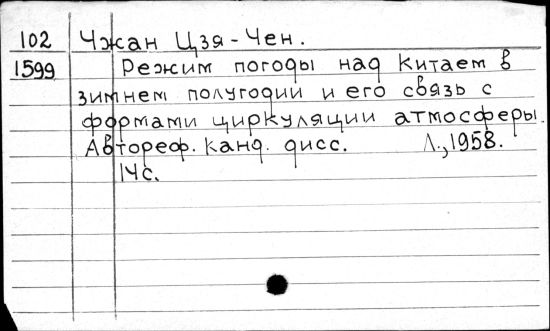 102 Чжан Цзя-Чен.
1599 Режим погоды над Китаем в
зимнем полугодии и его связь с
формами циркуляции атмосферы.
Автореф. канд. дисс. Л., 1958.
14с.